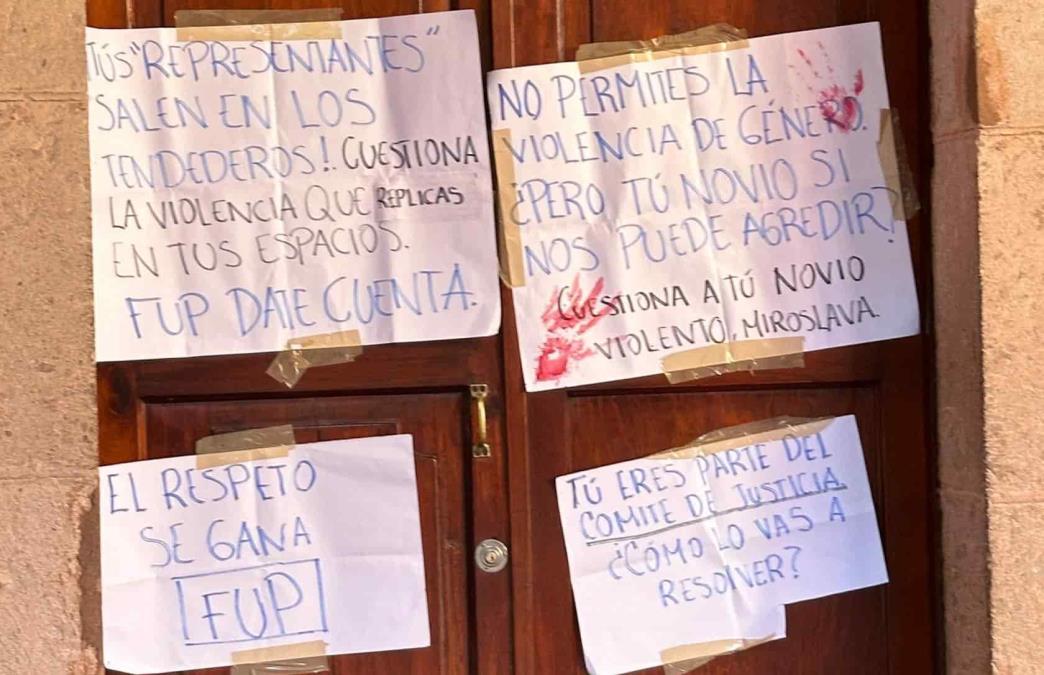 TÚS "REPRESENTANTES"
SALEN EN LOS
TENDEDEROS!. CUESTIONA
LA VIOLENCIA QUE REPLICAS
EN TUS ESPACIOS.
FUP DATE CUENTA.
NO PERMITES LA
VIOLENCIA DE GÉNERO.
¿PERO TÚ NOVIO SI
NOS PUEDE AGREDIR?
CUESTIONA A TÚ NOVIO
VIOLENTO, MIROSLAVA.
EL RESPETO
SE GANA
FUP
TÚ ERES PARTE DEL
COMITE DE JUSTICIA
¿CÓMO LO VAS A
RESOLVER?